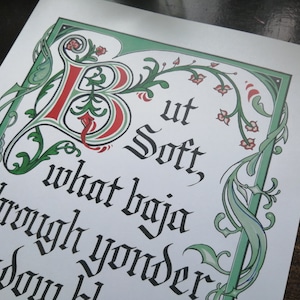 But
Soft,
what baja
hrough yonder